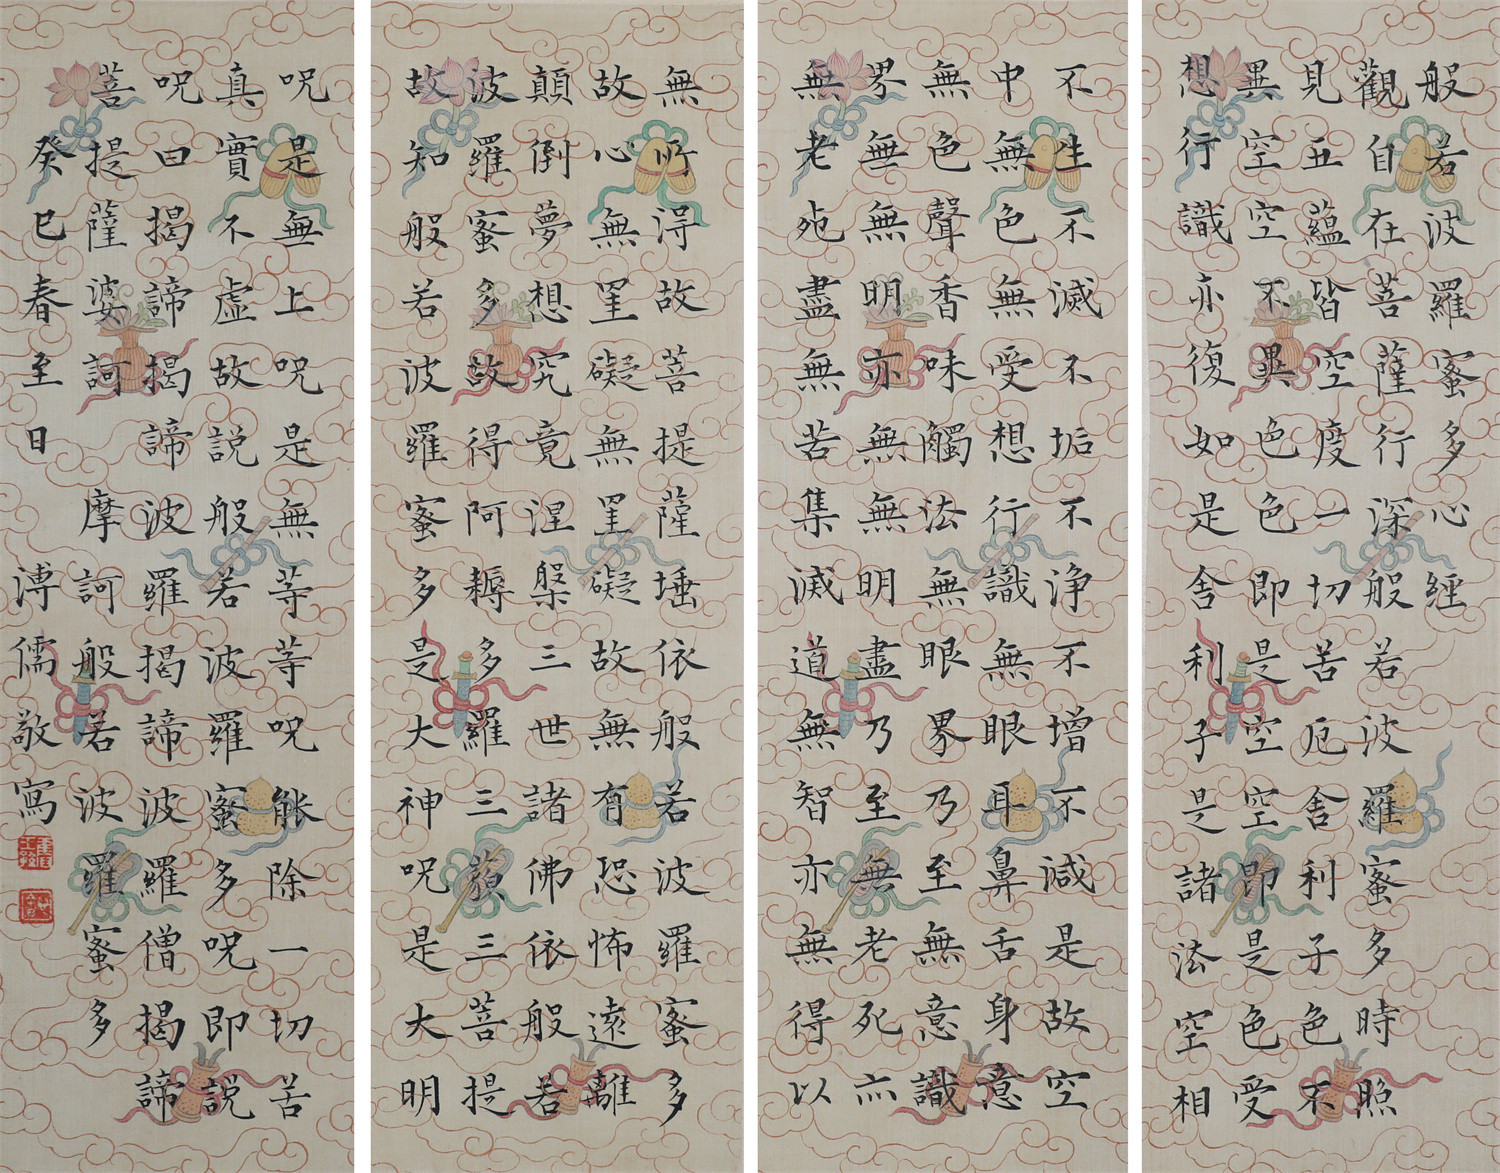 般若波羅蜜多心經
觀自在菩薩行深般若波羅蜜多時照
見五蘊皆空度一切苦厄舍利子色不
異空空不異色色即是空空即是色受
想行識亦復如是舍利子是諸法空相
不生不滅不垢不浄不增不減是故空
中無色無受想行識無眼耳鼻舌身意
無色聲香味觸法無眼界乃至無意識
界無無明亦無無明盡乃至無老死亦
無老死盡無苦集滅道無智亦無得以
無所得故菩提薩埵依般若波羅蜜多
故心無罣礙無罣礙故無有恐怖遠離
顛倒夢想究竟涅槃三世諸佛依般若
波羅蜜多故得阿耨多羅三藐三菩提
故知般若波羅蜜多是大神呪是大明
呪是無上呪是無等等呪能除一切苦
真實不虛故説般若波羅蜜多呪即説
呪曰揭諦揭諦波羅揭諦波羅僧揭諦
菩提薩婆訶 摩訶般若波羅蜜多
癸巳春至日 溥儒敬寫